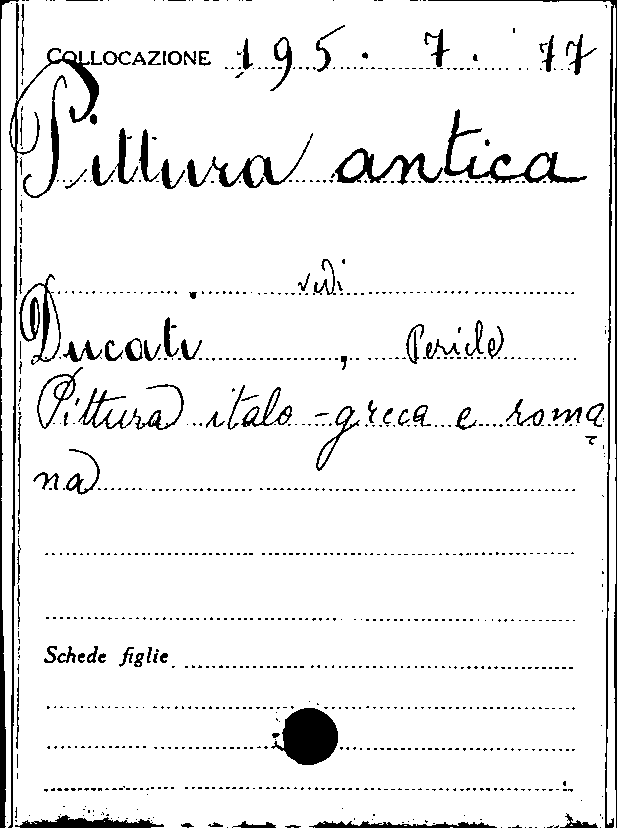 COLLOCAZIONE 195. 7. 77
Pittura antica
vedi
Ducati, Pericle
Pittura italo-greca e roma
na
Schede figlie